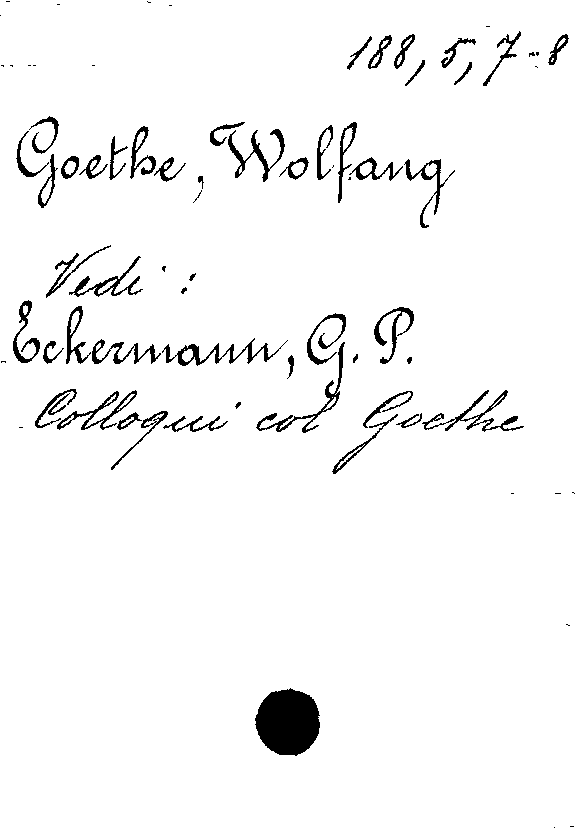 188, 5, 7-8
Goethe, Wolfang
Vedi :
Eckermann, G. P.
Colloqui col Goethe